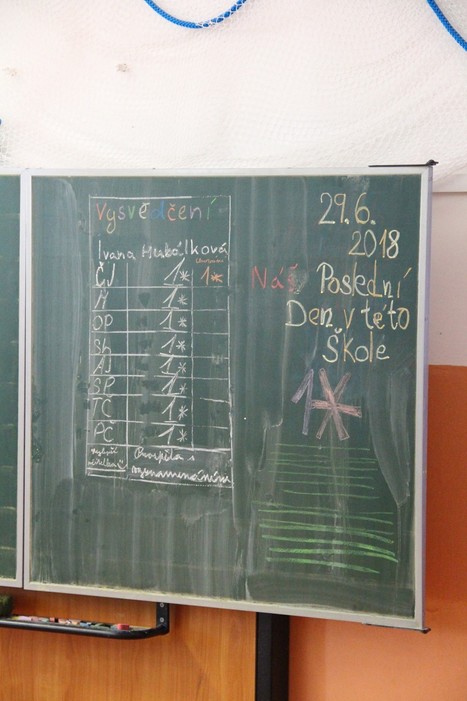 Vysvědčení
Ivana
Chování
ČJ 1* 1*
M 1*
OP 1*
Sh 1*
AJ 1*
SP 1*
TČ 1*
PČ 1*
Nejlepší
Prospěla s
vyznamenáním
29.6.
2018
Náš Poslední
Den v této
Škole
1*